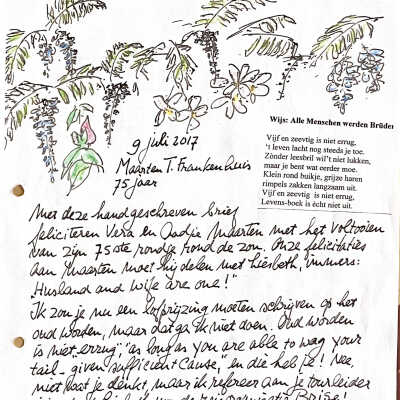 Wijs: Alle Menschen werden Brüder
Vijf en zeevtig is niet errug,
't leven lacht nog steeds je toe.
Zònder leesbril wil't niet lukken,
maar je bent wat eerder moe.
Klein rond buikje, grijze haren
rimpels zakken langzaam uit.
Vijf en zeevtig is niet errug,
Levens-boek is ècht niet uit.
9 juli 2017
Maarten T. Frankenhuis
75 jaar
Met deze handgeschreven brief
feliciteren Vera en Aadje Maarten met het voltooien
van zijn 75ste rondje rond de zon. Onze felicitaties
aan Maarten moet hij delen met Liesbeth, immers:
"Husband and wife are one!"
Ik zou je nu een lofprijzing moeten schrijven op het
oud worden, maar dat ga ik niet doen. Oud worden
is niet „errug", "as long as you are able to wag your
tail - given sufficient cause", en die heb je! Nee,
niet wat je denkt, maar ik refereer aan je tourleider